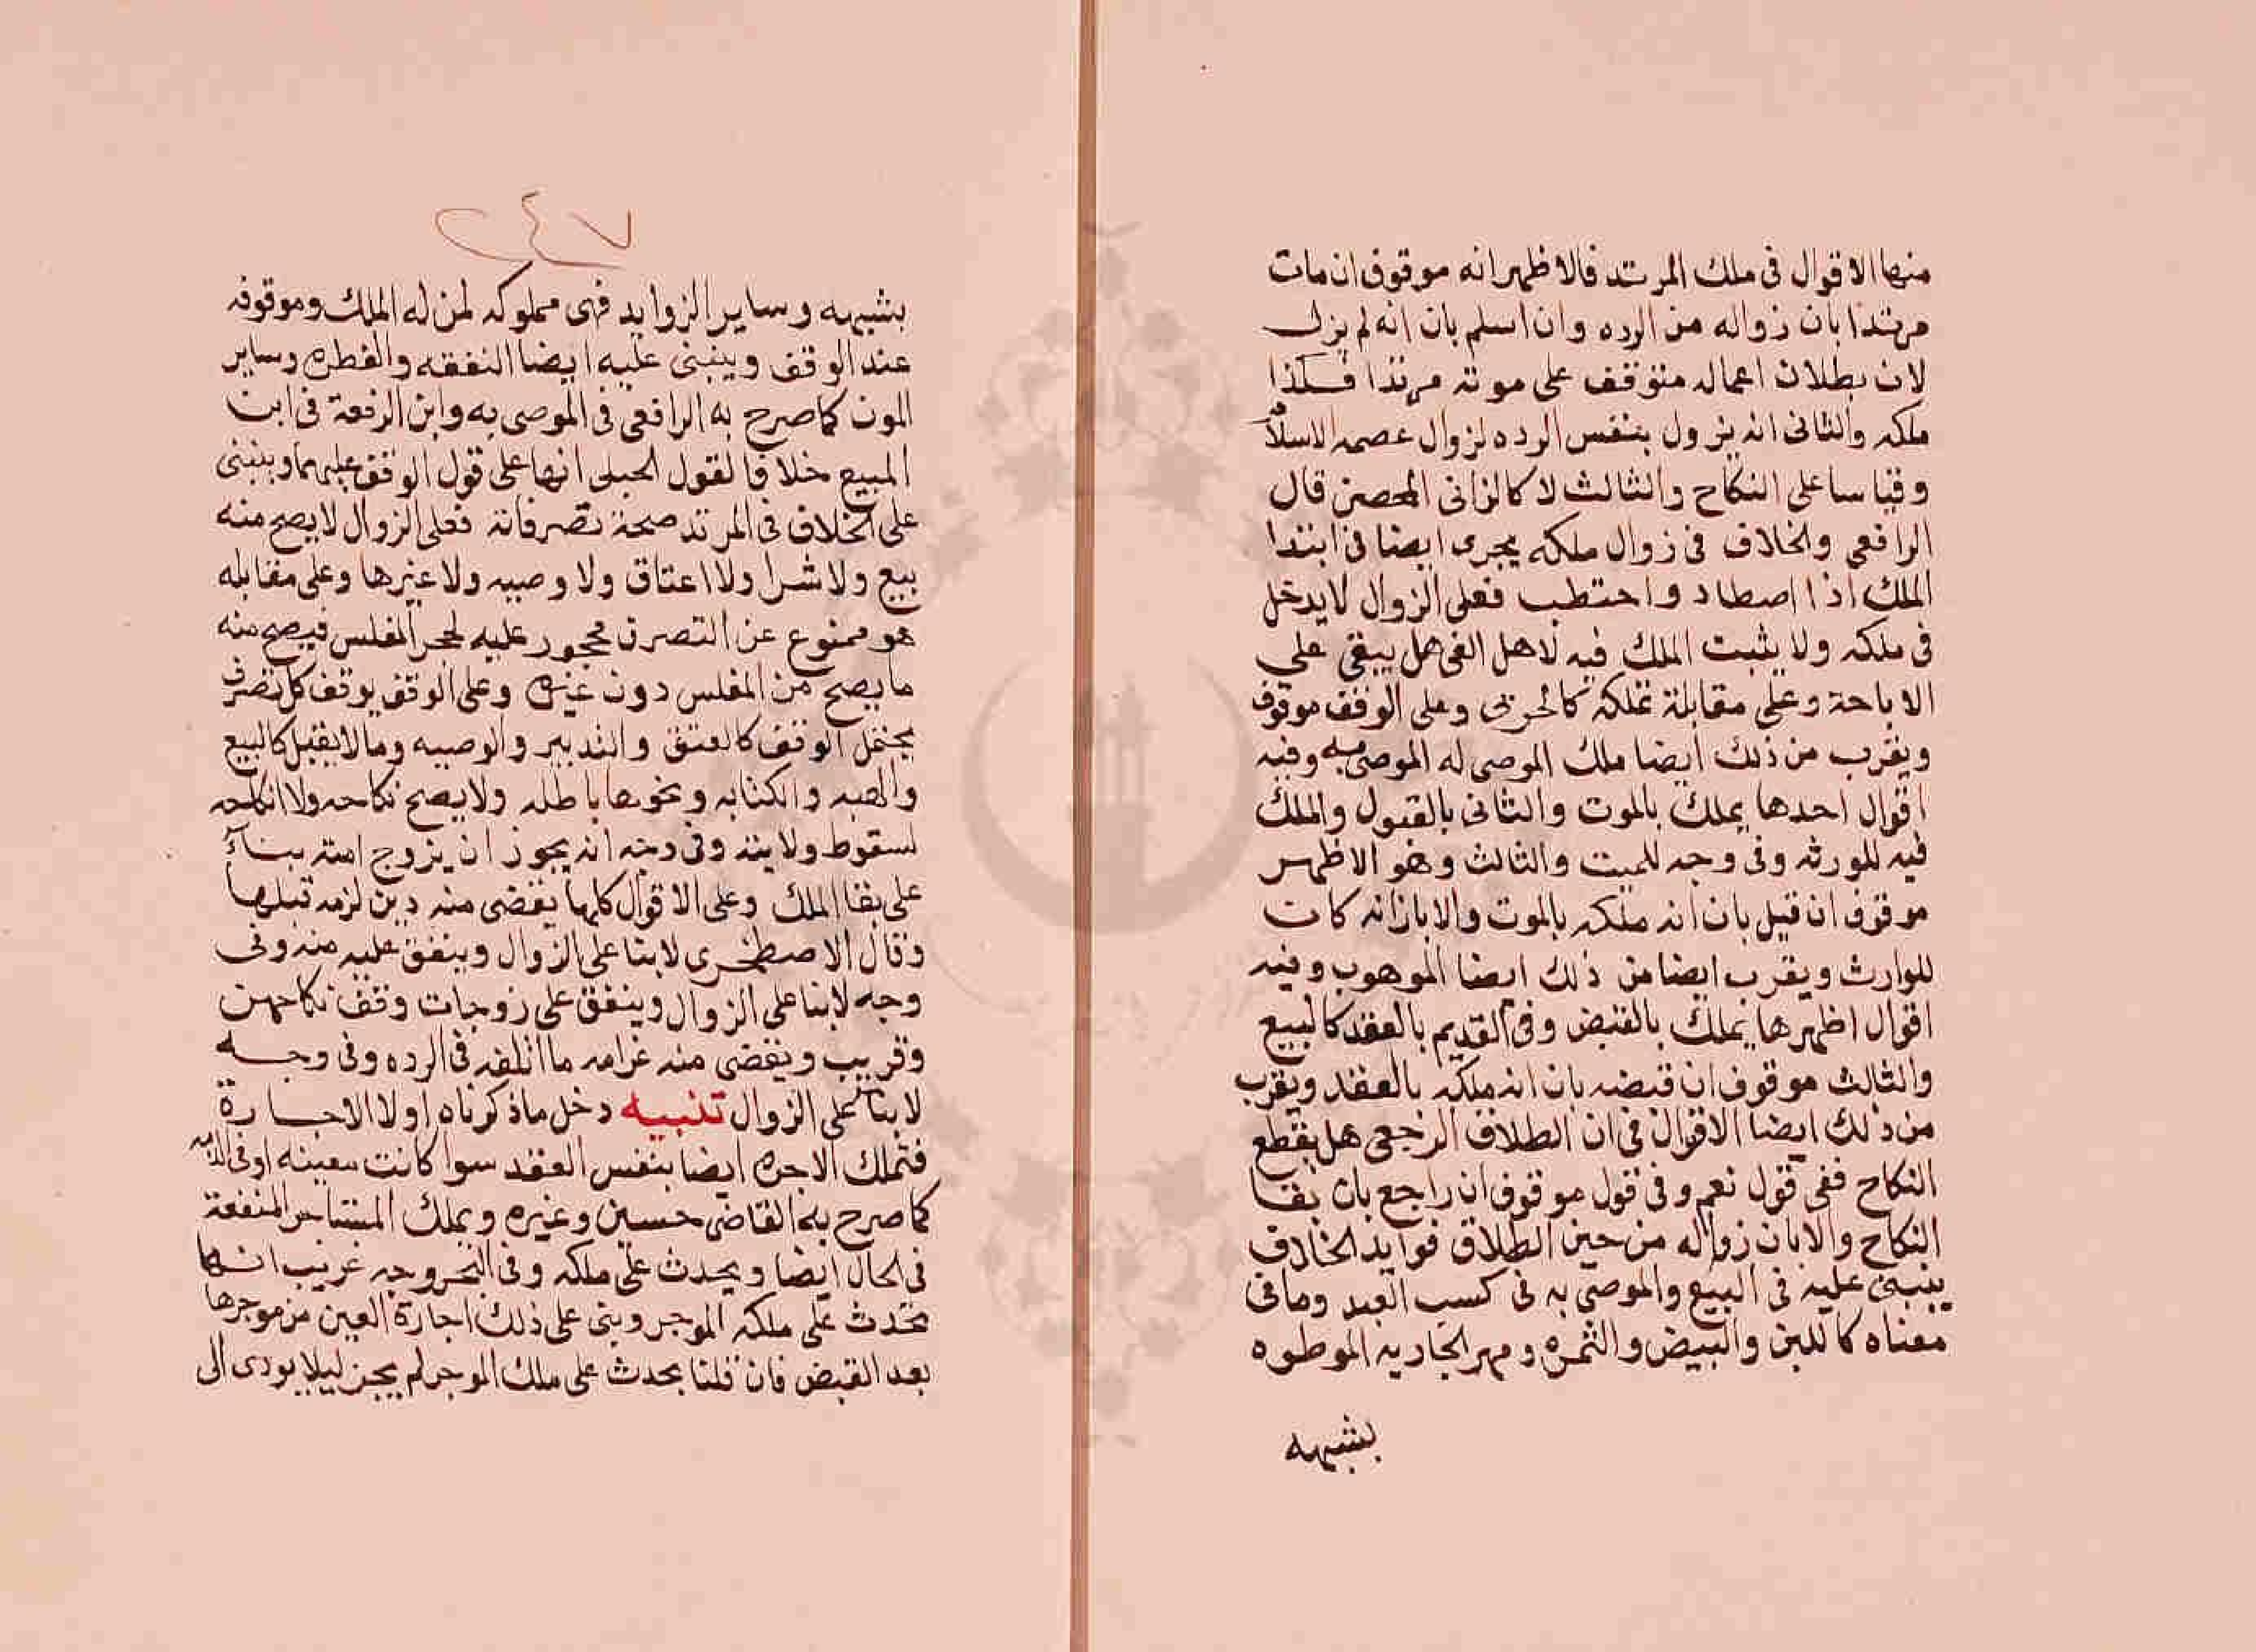 منها الاقوال فى ملك المرتد فالاظهر انه موقوف ان مات
مرتدا بان زواله من الرده وان اسلم بان انه لم يزل
لان بطلان اعماله متوقف على موته مرتدا فكذا
ملكه والثانى انه يزول بنفس الرده لزوال عصمه الاسلام
وقياسا على النكاح والثالث لا كالزانى المحصن قال
الرافعى والخلاف فى زوال ملكه يجرى ايضا فى ابتدا
الملك اذا اصطاد واحتطب فعلى الزوال لا يدخل
فى ملكه ولا يثبت الملك فيه لاهل الفى هل يبقى على
الاباحة وعلى مقابلة تملكه كالحربى وعلى الوقف موقوف
ويقرب من ذلك ايضا ملك الموصى له الموصى به وفيه
اقوال احدها يملك بالموت والثانى بالقبول والملك
فيه للمورثه وفى وجه للميت والثالث وهو الاظهر
موقوف ان قبل بان انه ملكه بالموت والا بان انه كان
للوارث ويقرب ايضا من ذلك ايضا الموهوب وفيه
اقوال اظهرها يملك بالقبض وفى القديم بالعقد كالبيع
والثالث موقوف ان قبضه بان انه ملكه بالعقد ويقرب
من ذلك ايضا الاقوال فى ان الطلاق الرجعى هل يقطع
النكاح ففى قول نعم وفى قول موقوف ان راجع بان بقا
النكاح والا بان زواله من حين الطلاق فوايد الخلاف
ينبنى عليه فى البيع والموصى به فى كسب العبد وما فى
معناه كاللبن والبيض والثمره ومهر الجاريه الموطوه
بشبهه
٢٤٧
بشبهه وساير الزوايد فهى مملوكه لمن له الملك وموقوفه
عند الوقف وينبنى عليه ايضا النفقه والفطره وساير
المون كما صرح به الرافعى فى الموصى به وابن الرفعة فى ابن
المبيع خلافا لقول الجيلى انها على قول الوقف عليهما وينبنى
على الخلاف فى المرتد صحة تصرفاته فعلى الزوال لا يصح منه
بيع ولا شرا ولا اعتاق ولا وصيه ولا غيرها وعلى مقابله
هو ممنوع عن التصرف محجور عليه لحجر المفلس فيصح منه
ما يصح من المفلس دون غيره وعلى الوقف يوقف كل تصرف
يحتمل الوقف كالعتق والتدبير والوصيه وما لا يقبل كالبيع
والهبه والكتابه ونحوها باطله ولا يصح نكاحه ولا انكاحه
لسقوط ولايته وفى وجه انه يجوز ان يزوج امته بناء
على بقا الملك وعلى الاقوال كلها يقضى منه دين لزمه قبلها
وقال الاصطخرى لا بنا على الزوال وينفق عليه منه وفى
وجه لا بنا على الزوال وينفق على زوجات وقف نكاحهن
وقريب ويقضى منه غرامه ما اتلفه فى الرده وفى وجه
لا بنا على الزوال تنبيه دخل ما ذكرناه اولا الاجارة
فتملك الاجره ايضا بنفس العقد سوا كانت معينه او فى الذمه
كما صرح به القاضى حسين وغيره ويملك المستاجر المنفعة
فى الحال ايضا ويحدث على ملكه وفى البحر وجه غريب انها
تحدث على ملكه الموجر وبنى على ذلك اجارة العين من موجرها
بعد القبض فان قلنا يحدث على ملك الموجر لم يجز ليلا يودى الى